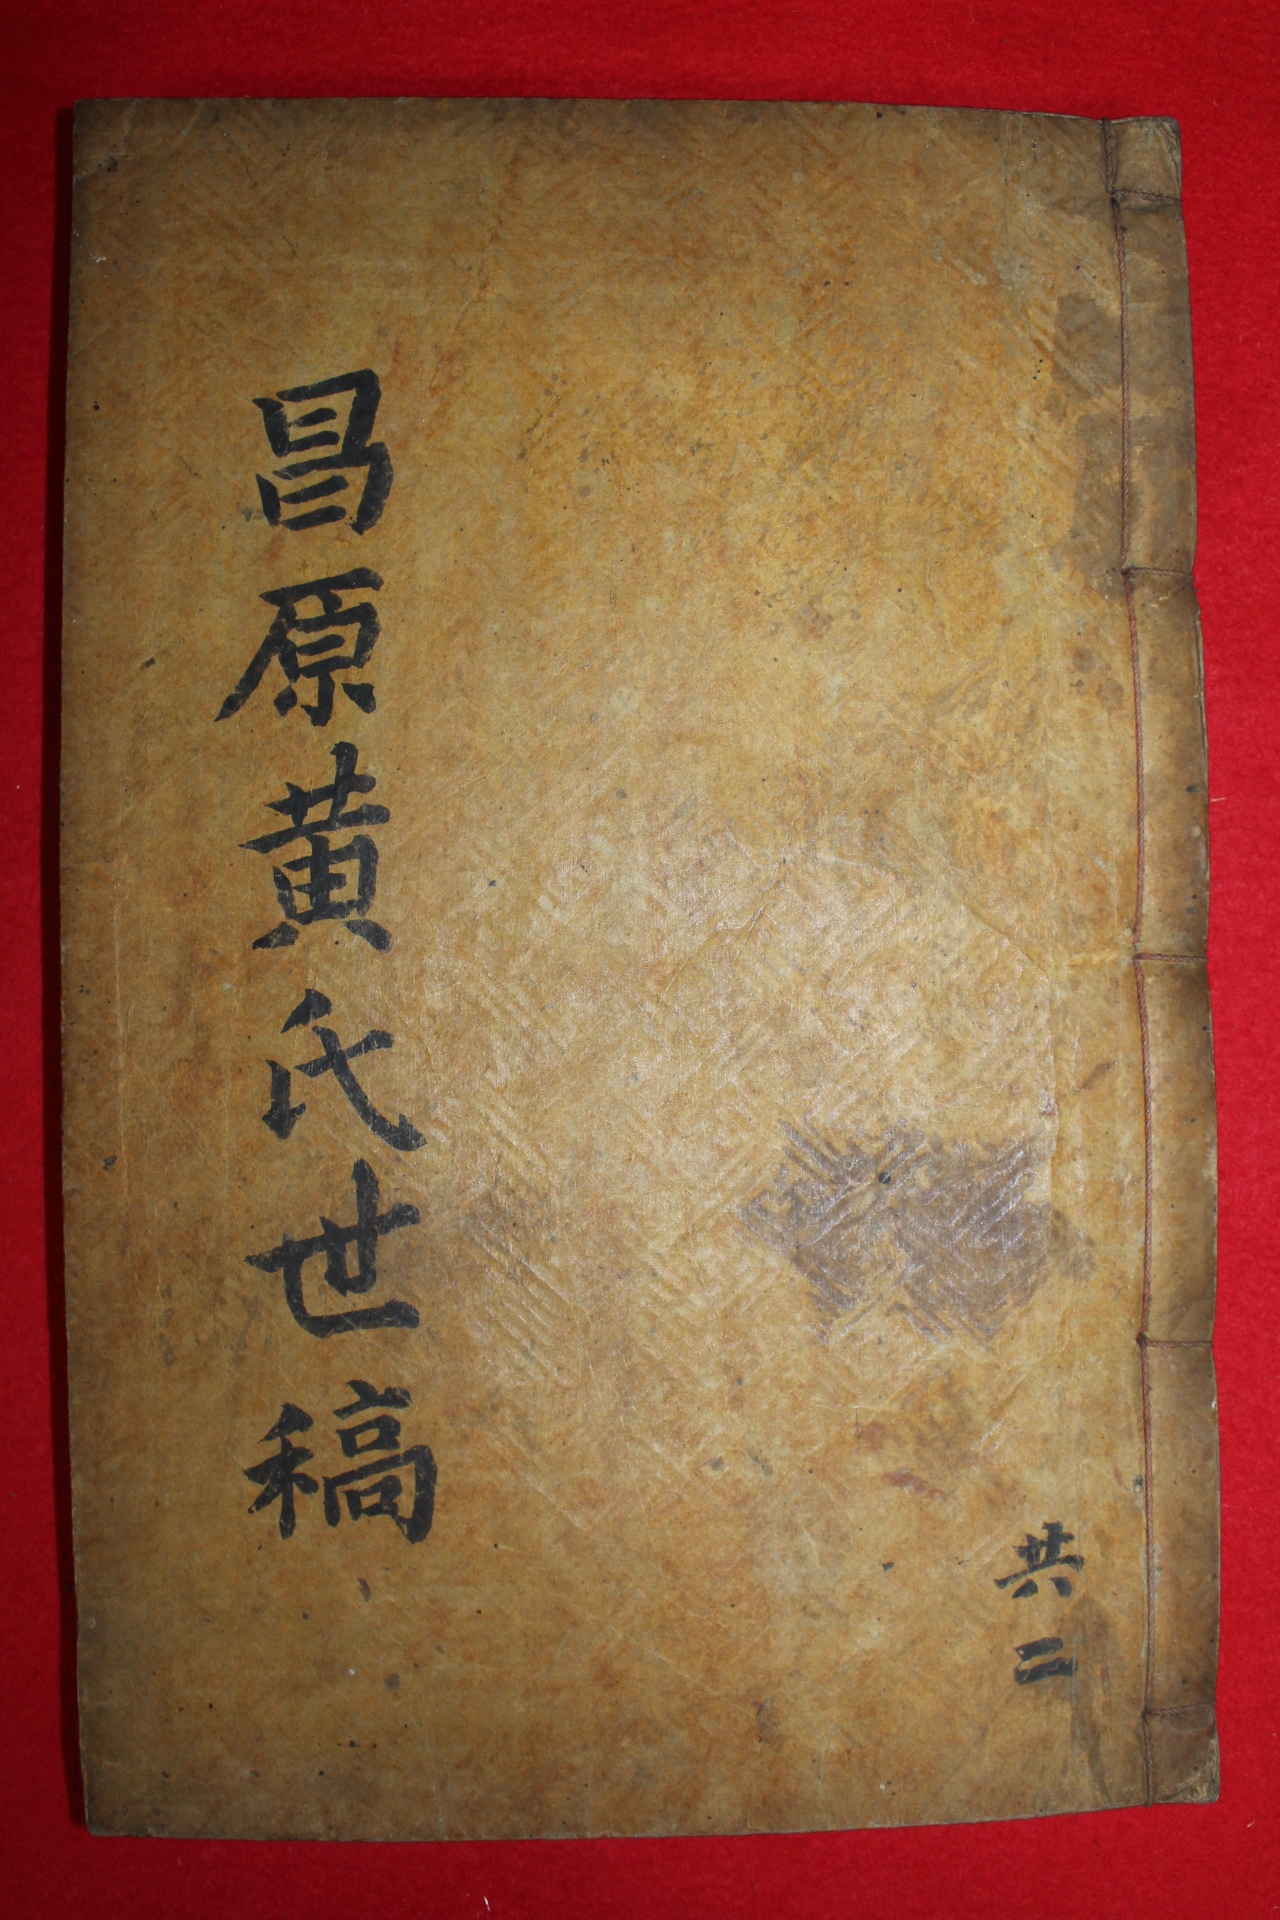 昌原黃氏世稿
共二